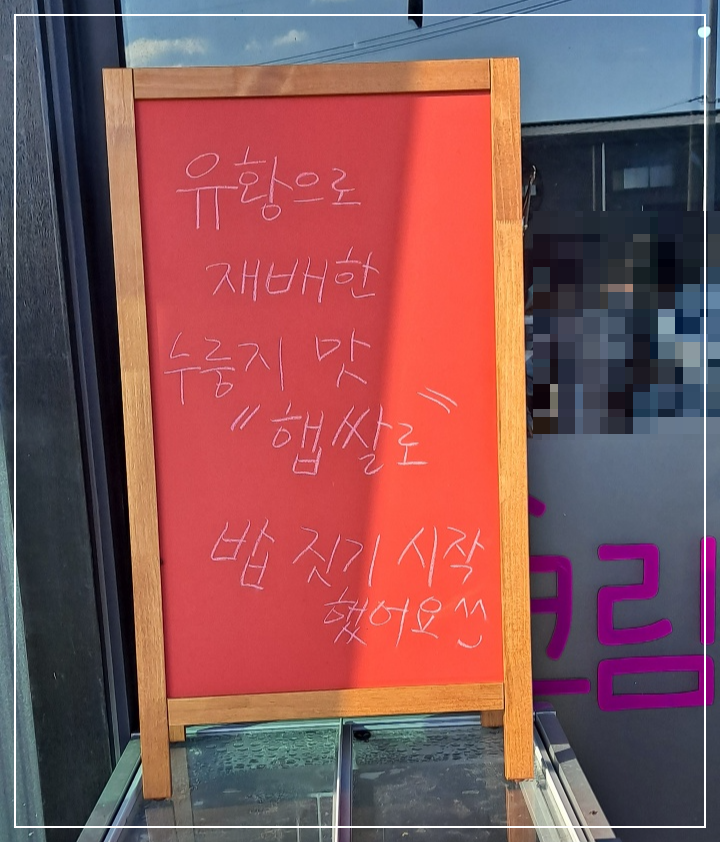 유황으로
재배한
누룽지 맛
"햅쌀로"
밥 짓기 시작
했어요
림